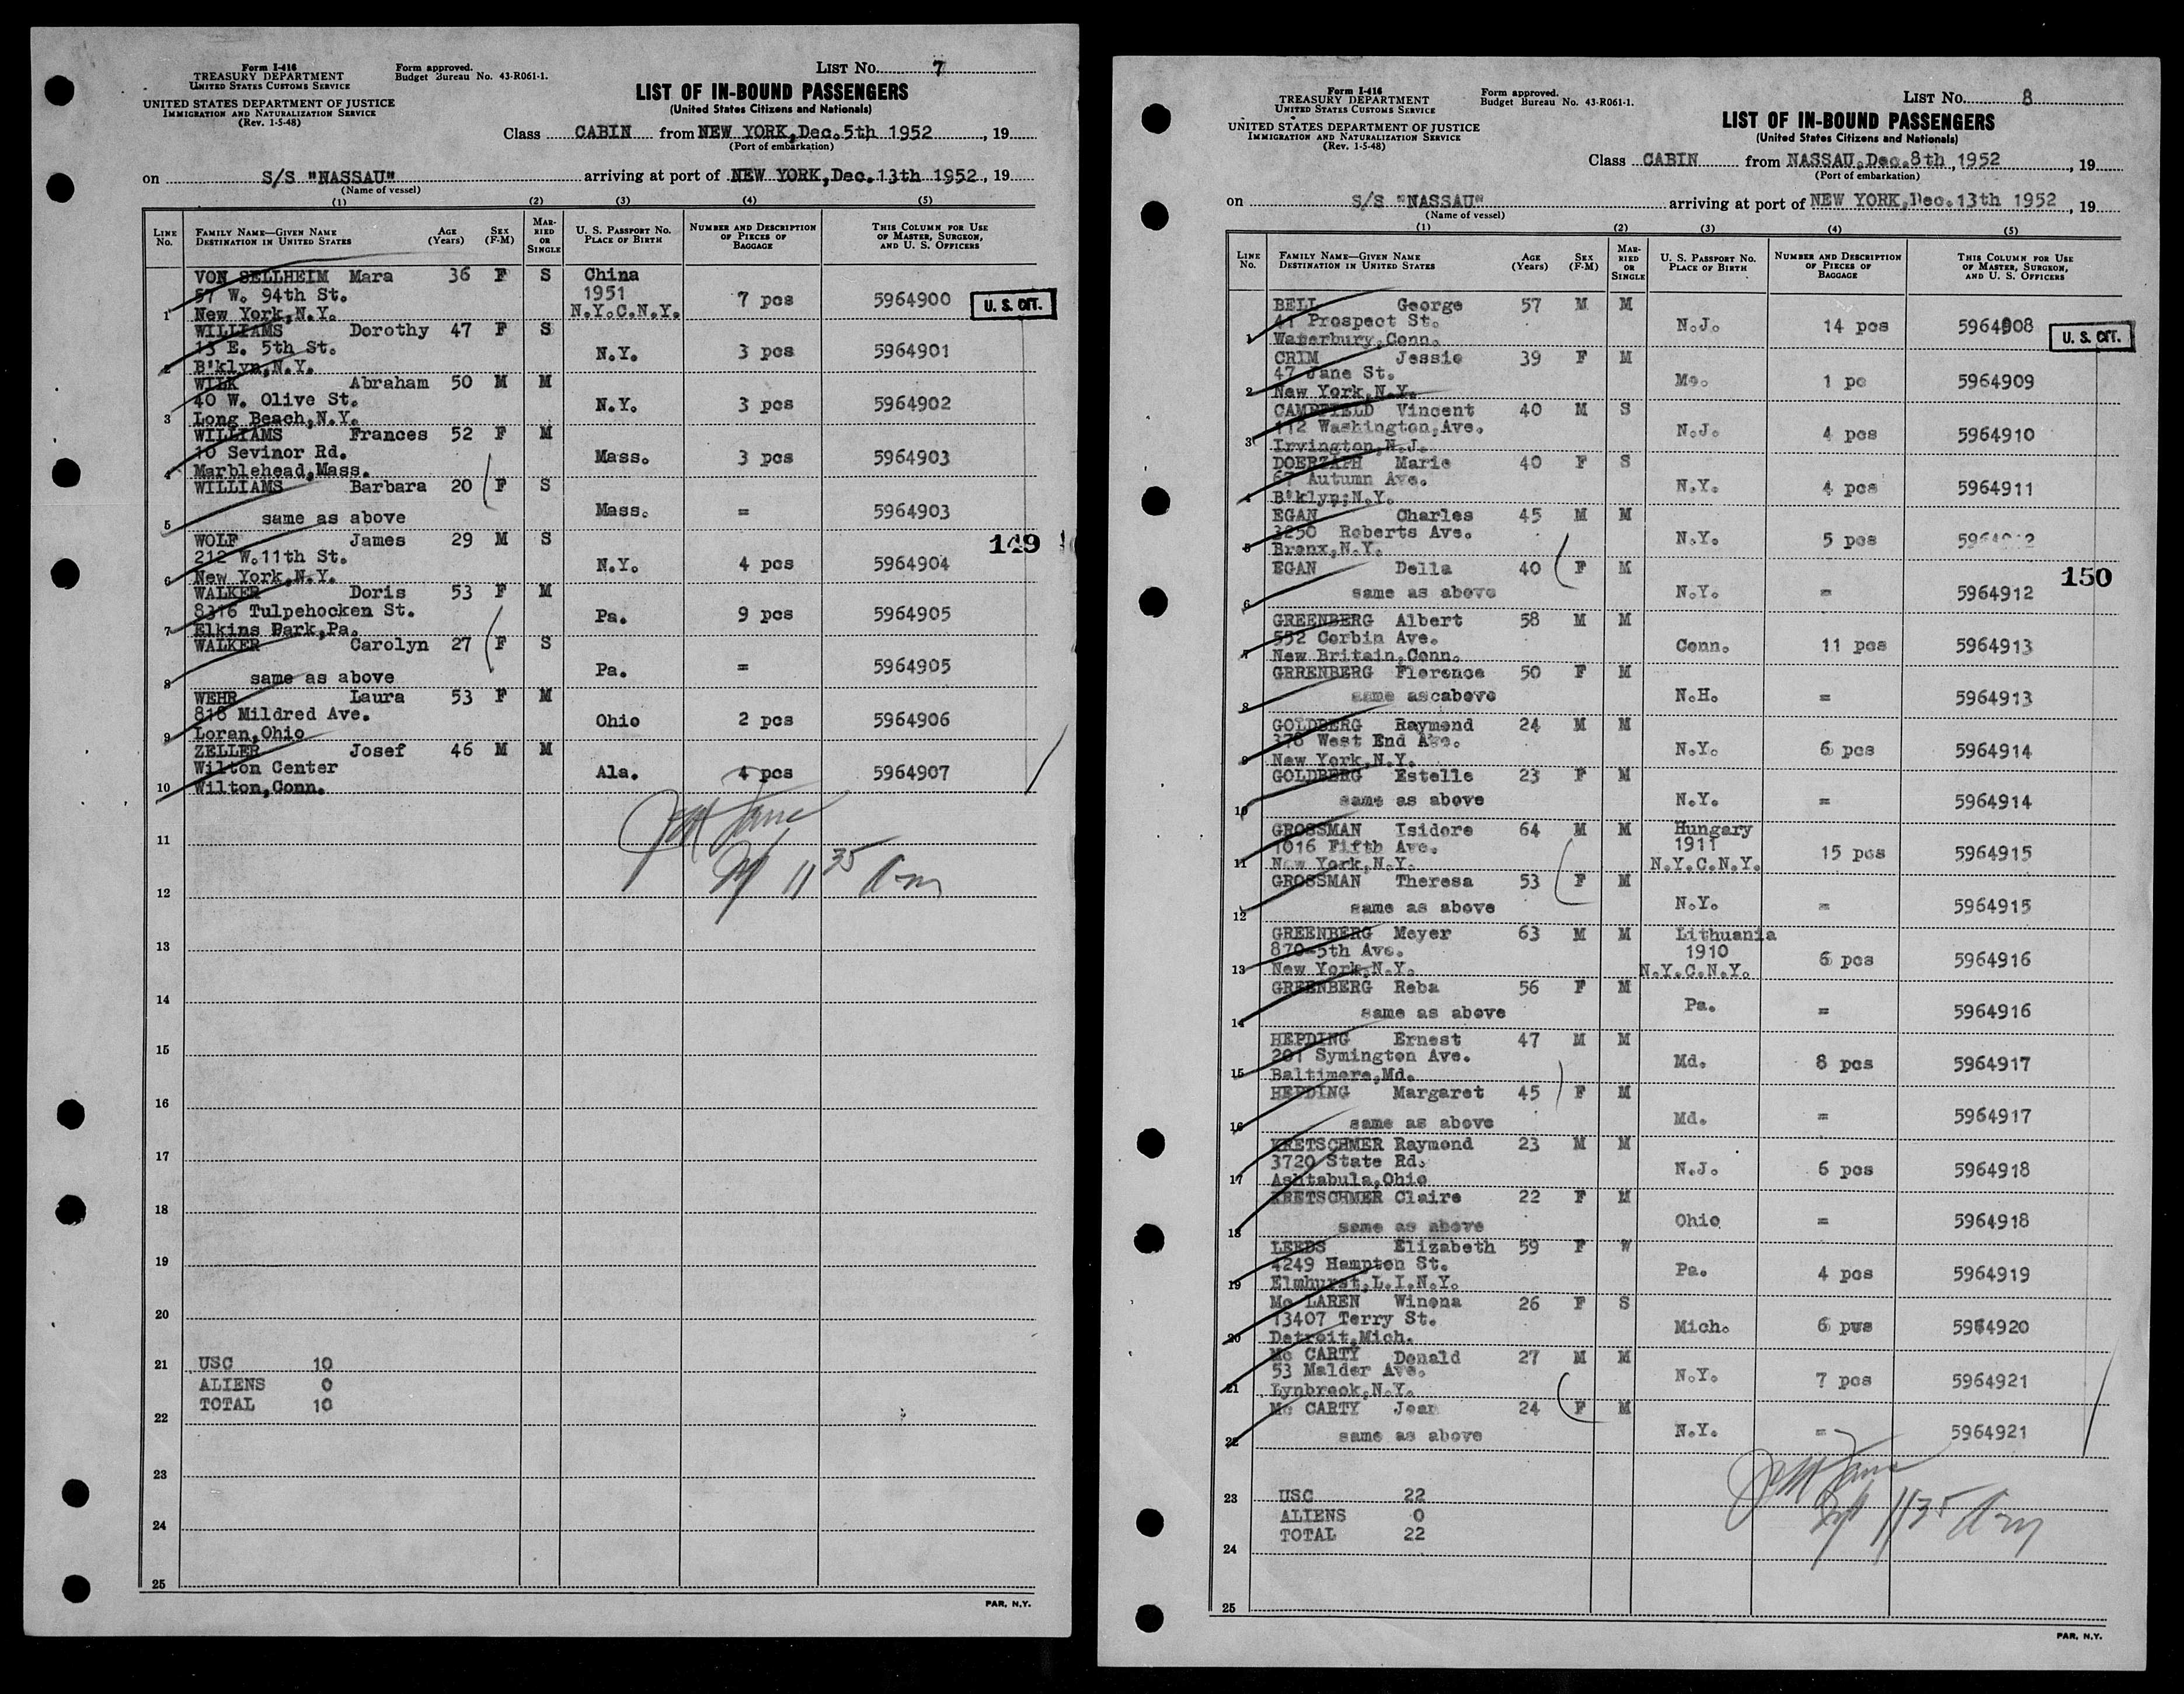 Form I-416
TREASURY DEPARTMENT
UNITED STATES CUSTOMS SERVICE
UNITED STATES DEPARTMENT OF JUSTICE
IMMIGRATION AND NATURALIZATION SERVICE
(Rev. 1-5-48)
Form approved.
Budget Bureau No. 43-R061-1.
LIST No. 7
LIST OF IN-BOUND PASSENGERS
(United States Citizens and Nationals)
Class CABIN from NEW YORK,Dec.5th 1952, 19
(Port of embarkation)
on S/S "NASSAU" arriving at port of NEW YORK,Dec.13th 1952, 19
(Name of vessel)
(1) (2) (3) (4) (5)
LINE No. FAMILY NAME—GIVEN NAME DESTINATION IN UNITED STATES AGE (Years) SEX (F-M) MARRIED OR SINGLE U. S. PASSPORT No. PLACE OF BIRTH NUMBER AND DESCRIPTION OF PIECES OF BAGGAGE THIS COLUMN FOR USE OF MASTER, SURGEON, AND U. S. OFFICERS
VON SELLHEIM Mara 36 F S China
57 W. 94th St. 1951 7 pcs 5964900 U. S. CIT.
1 New York,N.Y. N.Y.C.N.Y.
WILLIAMS Dorothy 47 F S
13 E. 5th St. N.Y. 3 pcs 5964901
2 B'klyn,N.Y.
WILK Abraham 50 M M
40 W. Olive St. N.Y. 3 pcs 5964902
3 Long Beach,N.Y.
WILLIAMS Frances 52 F M
10 Sevinor Rd. Mass. 3 pcs 5964903
4 Marblehead,Mass.
WILLIAMS Barbara 20 F S
5 same as above Mass. = 5964903
WOLF James 29 M S 149
212 W.11th St. N.Y. 4 pcs 5964904
6 New York,N.Y.
WALKER Doris 53 F M
8316 Tulpehocken St. Pa. 9 pcs 5964905
7 Elkins Park,Pa.
WALKER Carolyn 27 F S
8 same as above Pa. = 5964905
WEHR Laura 53 F M
816 Mildred Ave. Ohio 2 pcs 5964906
9 Loran,Ohio
ZELLER Josef 46 M M
Wilton Center Ala. 4 pcs 5964907
10 Wilton,Conn.
11
12 11 35 Am
13
14
15
16
17
18
19
20
21 USC 10
ALIENS 0
TOTAL 10
22
23
24
25
PAR, N.Y.
Form I-416
TREASURY DEPARTMENT
UNITED STATES CUSTOMS SERVICE
UNITED STATES DEPARTMENT OF JUSTICE
IMMIGRATION AND NATURALIZATION SERVICE
(Rev. 1-5-48)
Form approved.
Budget Bureau No. 43-R061-1.
LIST No. 8
LIST OF IN-BOUND PASSENGERS
(United States Citizens and Nationals)
Class CABIN from NASSAU,Dec.8th,1952, 19
(Port of embarkation)
on S/S "NASSAU" arriving at port of NEW YORK,Dec.13th 1952, 19
(Name of vessel)
(1) (2) (3) (4) (5)
LINE No. FAMILY NAME—GIVEN NAME DESTINATION IN UNITED STATES AGE (Years) SEX (F-M) MARRIED OR SINGLE U. S. PASSPORT No. PLACE OF BIRTH NUMBER AND DESCRIPTION OF PIECES OF BAGGAGE THIS COLUMN FOR USE OF MASTER, SURGEON, AND U. S. OFFICERS
BELL George 57 M M
41 Prospect St. N.J. 14 pcs 5964908 U. S. CIT.
1 Waterbury,Conn.
CRIM Jessie 39 F M
47 Jane St. Mo. 1 pc 5964909
2 New York,N.Y.
CAMPFIELD Vincent 40 M S
112 Washington,Ave. N.J. 4 pcs 5964910
3 Irvington,N.J.
DOERZAPH Marie 40 F S
67 Autumn Ave. N.Y. 4 pcs 5964911
4 B'klyn;N.Y.
EGAN Charles 45 M M
3250 Roberts Ave. N.Y. 5 pcs
5 Bronx,N.Y.
EGAN Della 40 F M 150
6 same as above N.Y. = 5964912
GREENBERG Albert 58 M M
552 Corbin Ave. Conn. 11 pcs 5964913
7 New Britain,Conn.
GRRENBERG Florence 50 F M
8 same ascabove N.H. = 5964913
GOLDBERG Raymond 24 M M
378 West End Ave. N.Y. 6 pcs 5964914
9 New York,N.Y.
GOLDBERG Estelle 23 F M
10 same as above N.Y. = 5964914
GROSSMAN Isidore 64 M M Hungary
1016 Fifth Ave. 1911 15 pcs 5964915
11 New York,N.Y. N.Y.C.N.Y.
GROSSMAN Theresa 53 F M
12 same as above N.Y. = 5964915
GREENBERG Meyer 63 M M Lithuania
870-5th Ave. 1910 6 pcs 5964916
13 New York,N.Y. N.Y.C.N.Y.
GREENBERG Reba 56 F M
14 same as above Pa. = 5964916
HEPDING Ernest 47 M M
201 Symington Ave. Md. 8 pcs 5964917
15 Baltimore,Md.
HEPDING Margaret 45 F M
16 same as above Md. = 5964917
KRETSCHMER Raymond 23 M M
3720 State Rd. N.J. 6 pcs 5964918
17 Ashtabula,Ohio
KRETSCHMER Claire 22 F M
18 same as above Ohio = 5964918
LEEDS Elizabeth 59 F W
4249 Hampton St. Pa. 4 pcs 5964919
19 Elmhurst,L.I.N.Y.
Mc LAREN Winona 26 F S
13407 Terry St. Mich. 6 pws 5964920
20 Detroit,Mich.
Mc CARTY Donald 27 M M
53 Malder Ave. N.Y. 7 pcs 5964921
21 Lynbrook,N.Y.
Mc CARTY Jean 24 F M
22 same as above N.Y. = 5964921
23 USC 22
ALIENS 0 11 35 Am
TOTAL 22
24
25
PAR, N.Y.